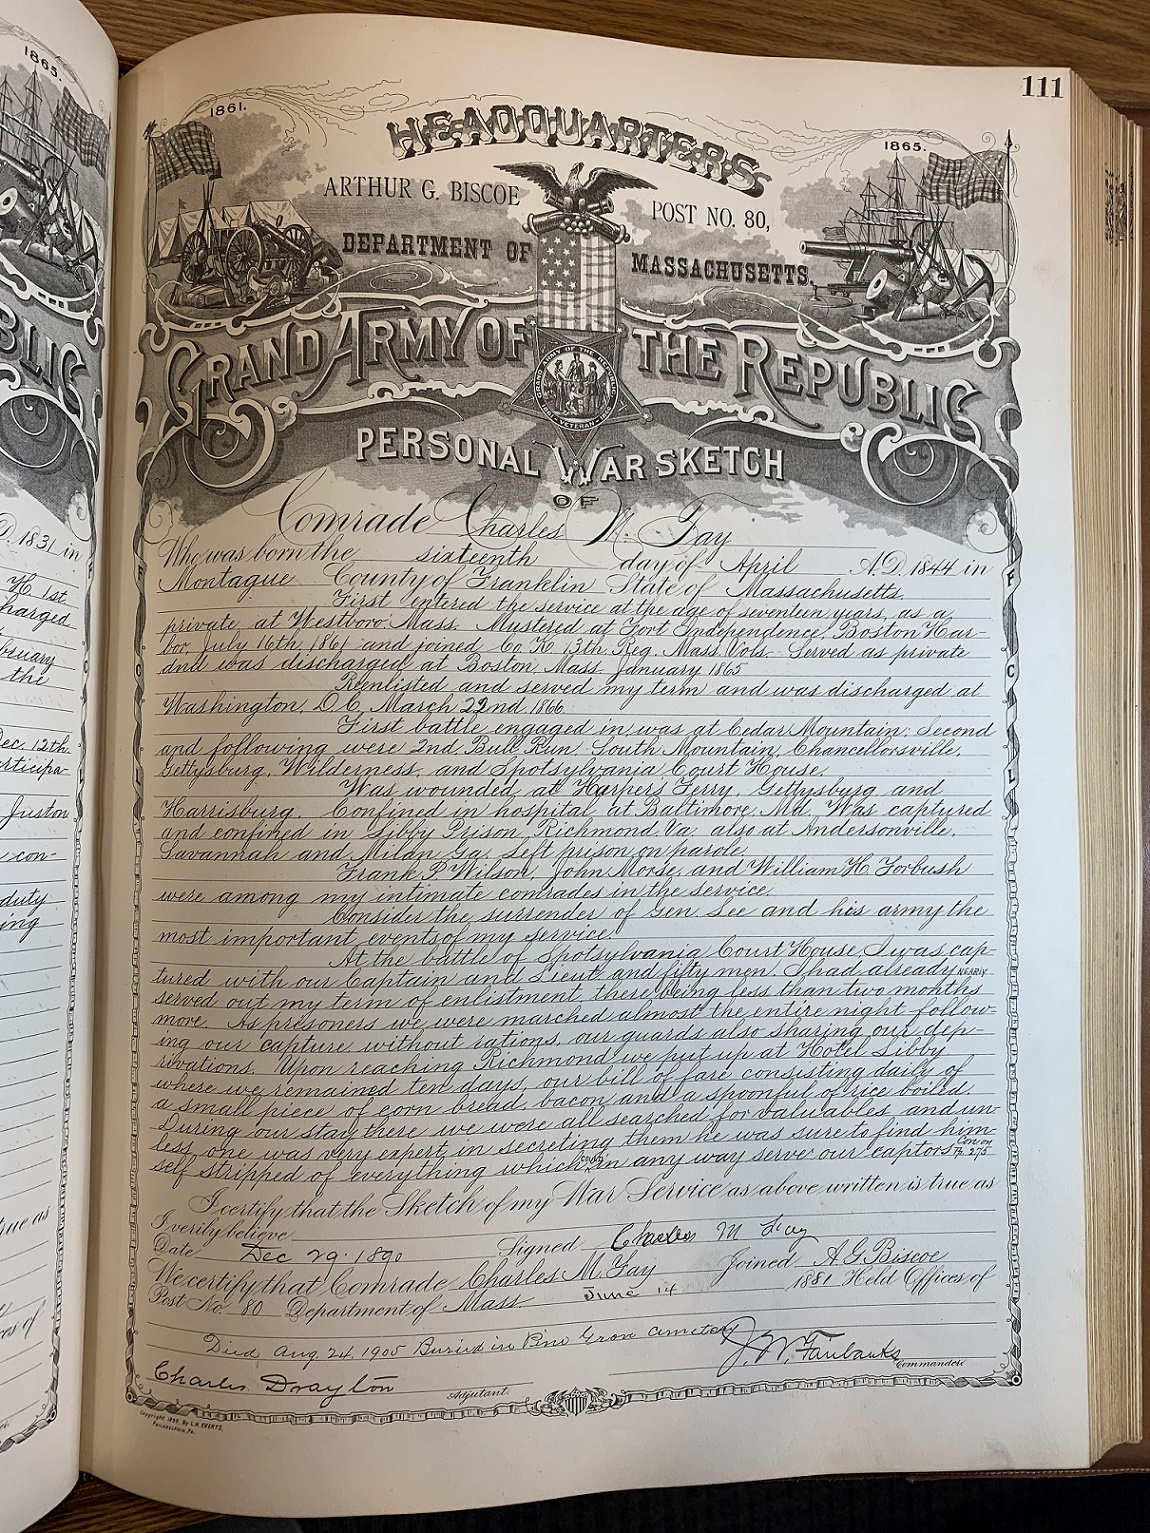 111
1861.
1865.
HEADQUARTERS
ARTHUR G. BISCOE POST NO. 80,
DEPARTMENT OF MASSACHUSETTS.
GRAND ARMY OF THE REPUBLIC
GRAND ARMY OF THE REPUBLIC
VETERAN
PERSONAL WAR SKETCH
OF
Comrade Charles M. Fay
Who was born the sixteenth day of April A.D. 1844 in
Montague County of Franklin State of Massachusetts.
First entered the service at the age of seventeen years, as a
private at Westboro Mass. Mustered at Fort Independence, Boston Har-
bor, July 16th, 1861 and joined Co. K 13th Reg. Mass. Vols. Served as private
and was discharged at Boston, Mass. January 1865
Reenlisted and served my term and was discharged at
Washington, D.C. March 22nd, 1866
First battle engaged in was at Cedar Mountain; Second
and following were 2nd Bull Run, South Mountain, Chancellorsville,
Gettysburg, Wilderness, and Spotsylvania Court House.
Was wounded at Harper's Ferry, Gettysburg and
Harrisburg. Confined in hospital at Baltimore, Md. Was captured
and confined in Libby Prison, Richmond Va. also at Andersonville,
Savannah and Milan Ga. Left prison on parole.
Frank P. Wilson, John Morse, and William H. Forbush
were among my intimate comrades in the service.
Consider the surrender of Gen. Lee and his army the
most important events of my service.
At the battle of Spotsylvania Court House, I was cap-
tured with our Captain and Lieut. and fifty men. I had already NEARLY
served out my term of enlistment, there being less than two months
more. As prisoners we were marched almost the entire night follow-
ing our capture without rations, our guards also sharing our dep-
rivations. Upon reaching Richmond we put up at Hotel Libby
where we remained ten days, our bill of fare consisting daily of
a small piece of corn bread, bacon and a spoonful of rice boiled.
During our stay there we were all searched for valuables, and un-
less one was very expert in secreting them he was sure to find him-
self stripped of everything which could in any way serve our captors. Con on P. 275
I certify that the Sketch of my War Service as above written is true as
I verily believe
Date Dec 29. 1890 Signed Charles M Fay
We certify that Comrade Charles M. Fay Joined A. G. Biscoe
Post No. 80 Department of Mass. June 14 1881 Held Offices of
Died Aug. 24, 1905 Buried in Pine Grove Cemetery
J. W. Fairbanks
Commander
Charles Drayton
Adjutant.
Copyright 1890, By L.H. EVERTS,
PHILADELPHIA, PA.
F
C
L
1865.
BLIC
D. 1831 in
H 1st
charged
bruary
the
Dec. 12th
articipa-
Juston
con-
duty
ing
true as
of